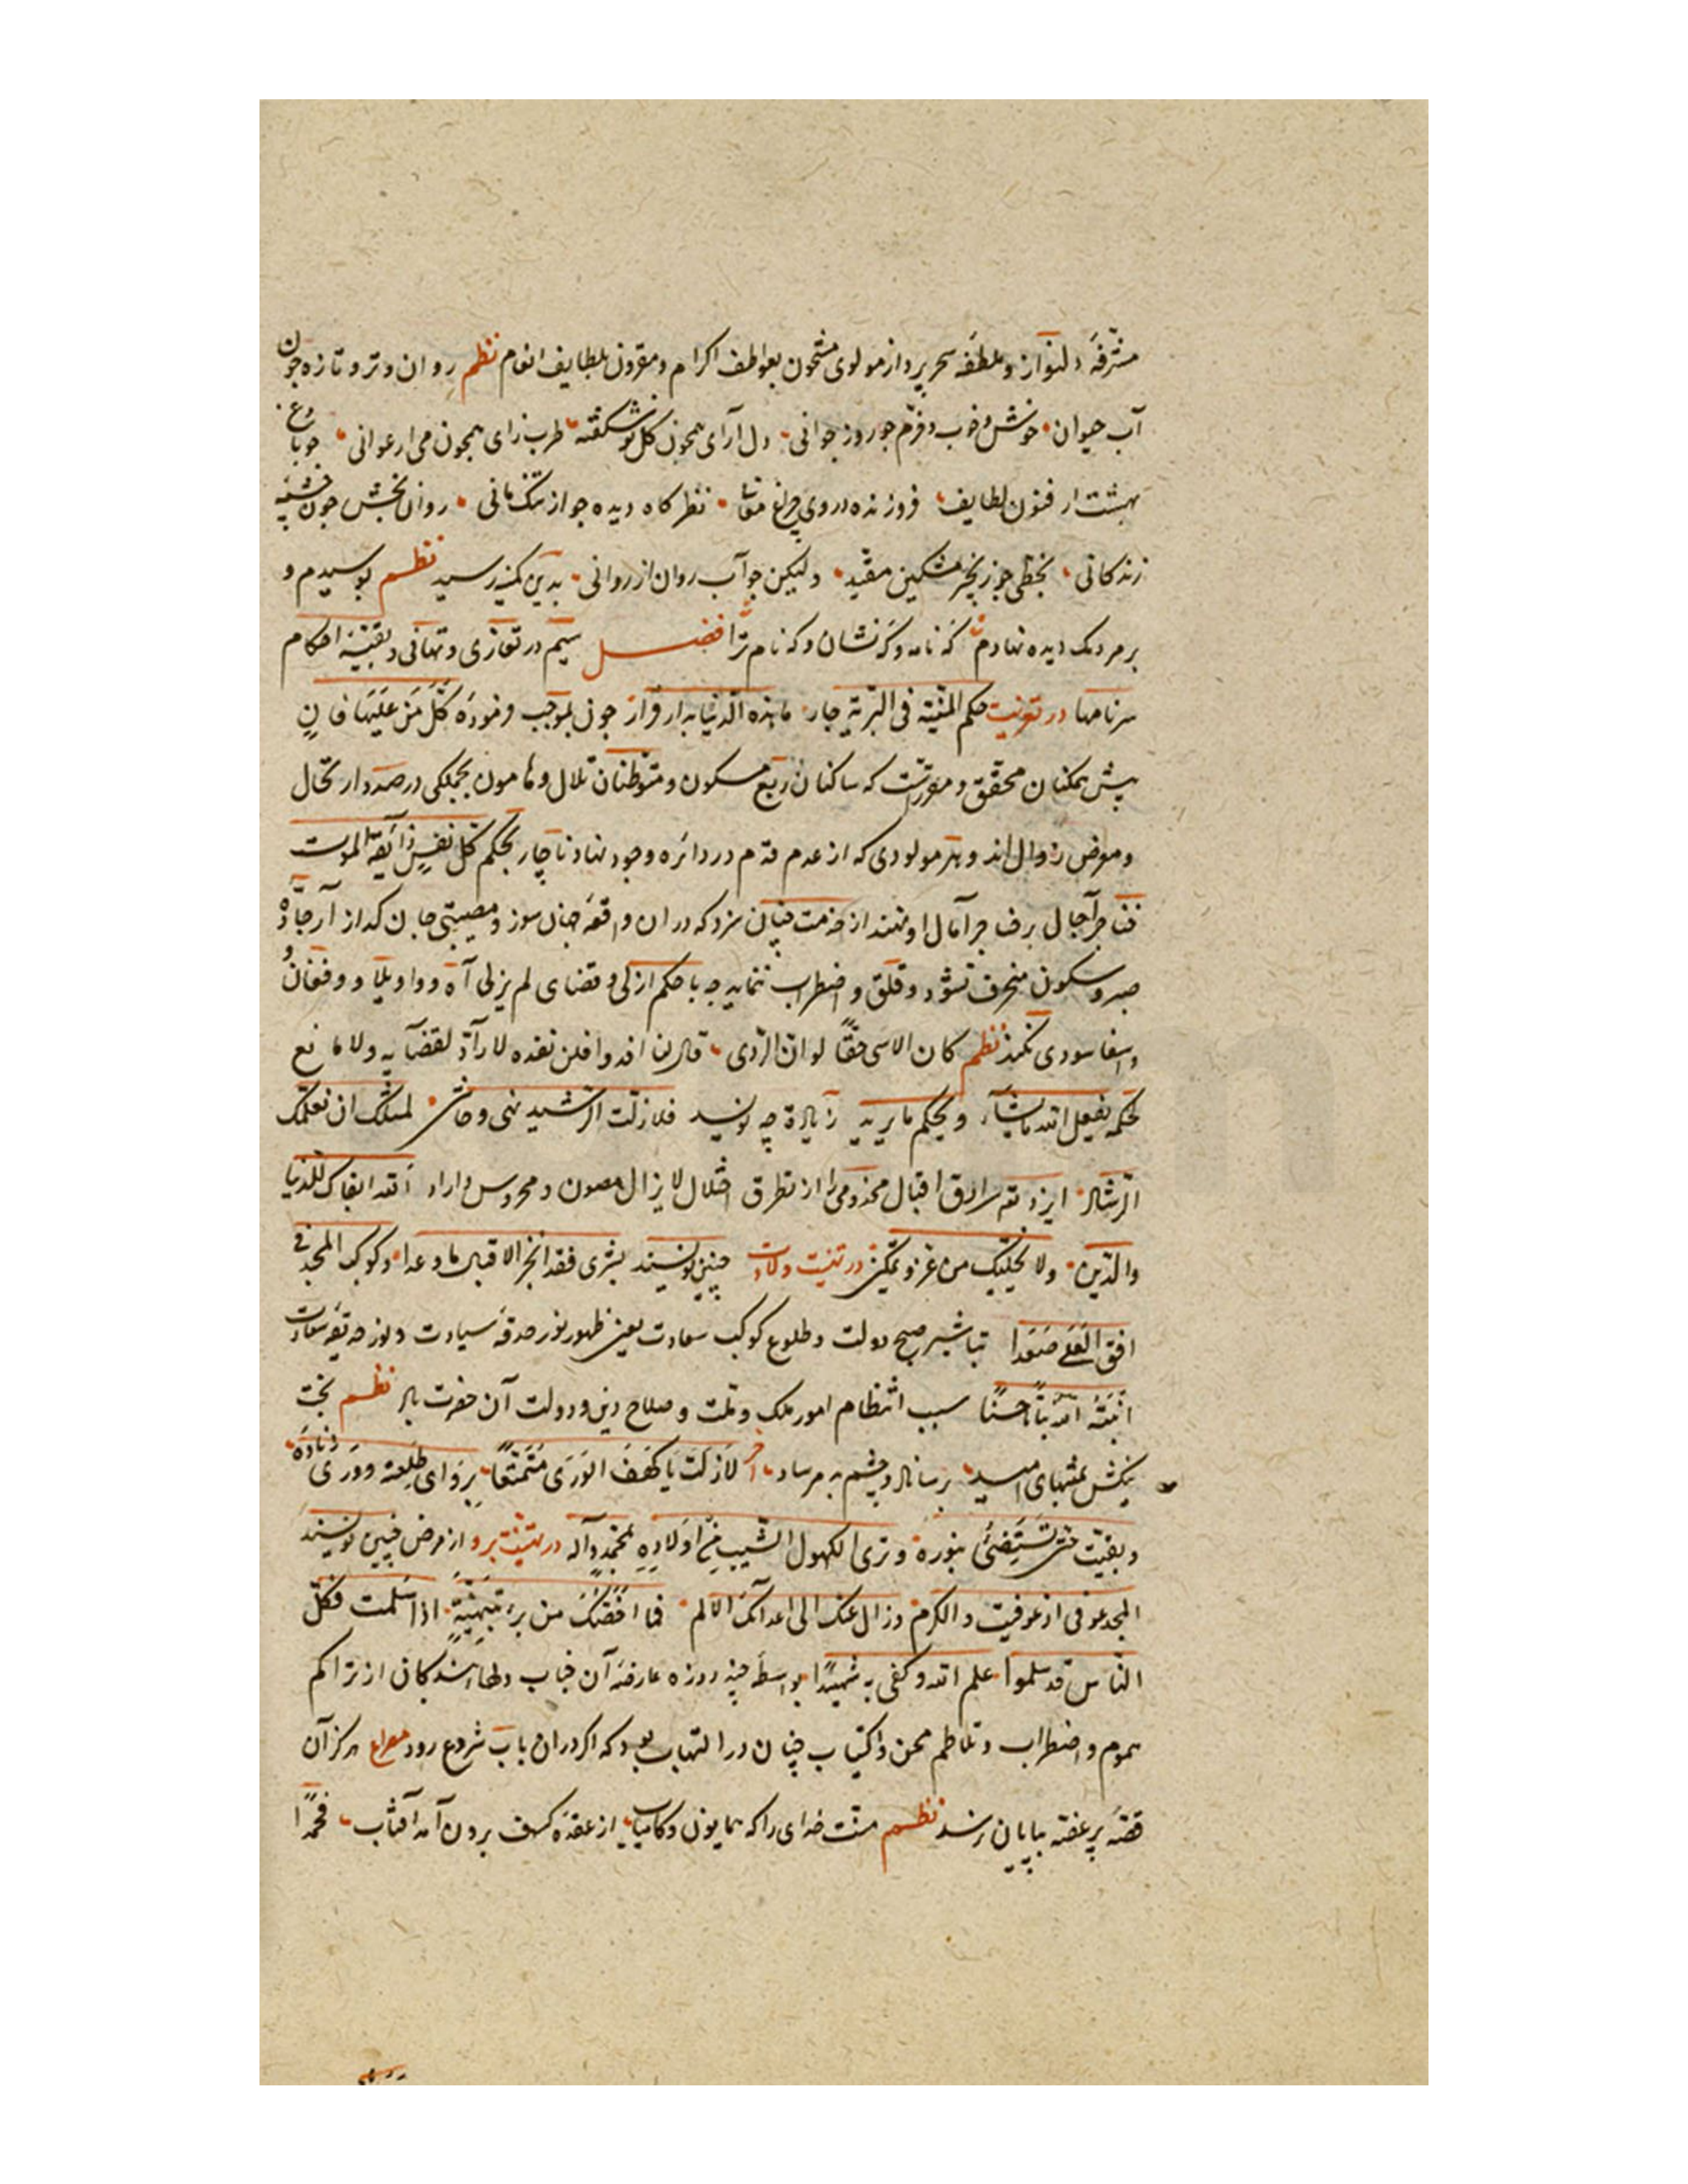 مشرفهٔ دلنواز و ملطفه سحرپرداز مولوی مشحون بعواطف اکرام و مقرون بلطایف انعام نظم روان و تر و تازه جون
آب حیوان خوش و خوب و خرم جو روز جوانی دل آرای همجون کل نوشکفته طرب زای همجون می ارغوانی جو باغ
بهشت از فنون لطایف فروزنده در وی جراغ نظر کاه دیده جو ارتنک مانی روان بخش جون جشمه
زندکانی بخطی جو زنجیر مشکین مقید ولیکن جو آب روان از روانی بدین کمینه رسید نظم بوسیدم و
بر مردمک دیده نهادم که نامه و که نشان و که نام ترا فصل سیم در تعازی و تهانی و بقیه احکام
سرنامها در تعزیت حکم المنیة فی البریة جار ما هذه الدنیا بدار قرار جون بموجب فرموده کُلُّ مَنْ عَلَیْهَا فَانٍ
پیش همکنان محقق و مقررست که ساکنان ربع مسکون و متوطنان تلال و هامون بجملکی در صدد ارتحال
و معرض زوال اند و هر مولودی که از عدم قدم در دائره وجود نهاد ناچار بحکم کل نفس ذائقة الموت
آجال بر آمال او نهند از خدمت چنان سزد که در ان واقعه جهان سوز و مصیبتی جان کداز از جاده
صبر و سکون منحرف نشود و قلق و اضطراب ننماید چه با حکم ازلی و قضای لم یزلی آه و واویلا و فغان و
وا اسفا سودی نکند نظم کان الاسی حقًا لو انّ الردی لا رادّ لقضآیه ولا مانع
لحکمه یفعل الله ما یشآء و یحکم ما یرید زیاده چه نویسد فلا زلت الرشید لمثلک ان نعلمک
الرشاد ایزد تعه سرادق اقبال مخدومی را از تطرق اختلال لا یزال مصون و محروس داراد الله ابقاک للدنیا
والدین ولا یخلیک من عز و تمکین در تهنیت ولادت چنین نویسند بشری فقد انجز الاقبال ما وعدا وکوکب المجد فی
افق العلی صعدا تباشیر صبح دولت و طلوع کوکب سعادت یعنی ظهور نور حدقه سیادت و نور حدیقه سعادت
انبته الله نباتًا حسنًا سبب انتظام امور ملک و ملت و صلاح دین و دولت آن حضرت باد نظم بخت
نیکش بمنتهای امید برساناد و چشم بد مرساد آخر لا زلت یا کهف الوری متمتعًا
و بقیت حتی تستضیٔ بنوره وتری الکهول الشیب من اولاده بمحمد وآله در تهنیت برو از مرض چنین نویسند
المجد عوفی اذ عوفیت والکرم وزال عنک الی اعدائک الالم فما اخصک من برء بتهنیة اذا سلمت فکل
الناس قد سلموا علم الله وکفی به شهیدًا بواسطه چند روزه عارضه آن جناب دلهای بندکان از تراکم
هموم و اضطراب و تلاطم محن و اکتیاب چنان در التهاب بود که اکر در ان باب شروع رود مصراع هرکز آن
قصه پر غصه بپایان نرسد نظم منت خدای را که همایون و کامیاب از عقده کسف برون آمد آفتاب فحمدًا